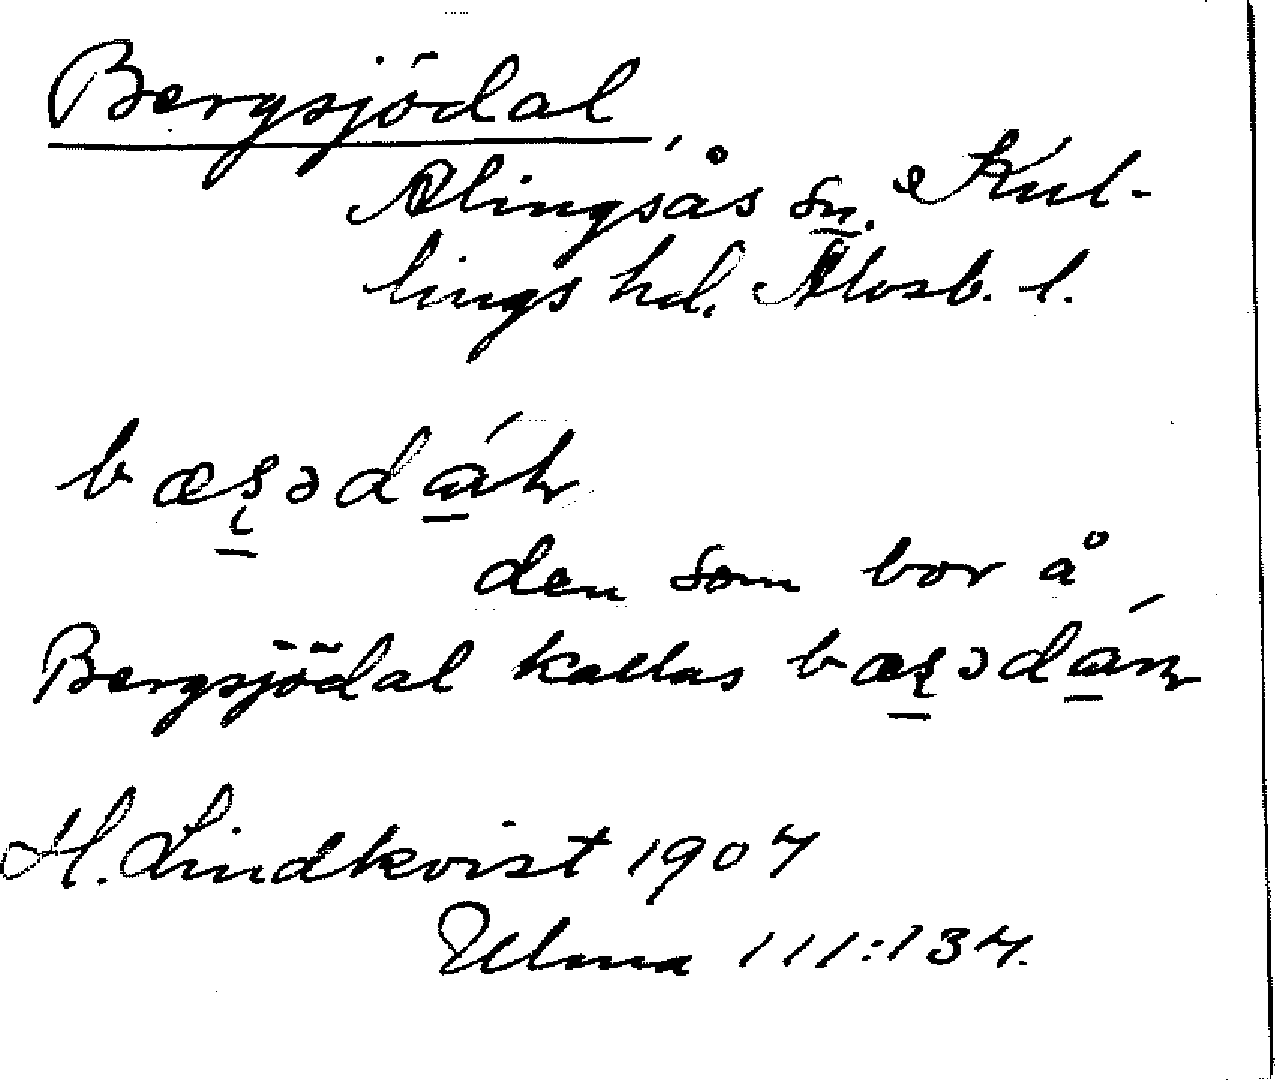 Bergsjödal,
Alingsås sn. Kul-
lings hd. Älvsb. l.
den som bor å
Bergsjödal kallas
H. Lindkvist 1907
Ulma 111:137.